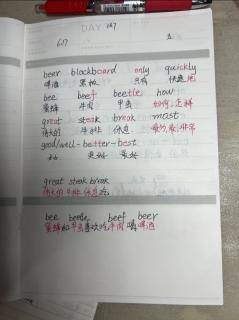 DAY 127
617 五
beer blackboard only quickly
啤酒 黑板 只有 快速地
bee beef beetle how
蜜蜂 牛肉 甲虫 如何,怎样
great steak break most
伟大的 牛排 休息 最多,最,非常
good/well-better-best
好 更好 最好
great steak break
伟大的牛排休息吃
bee beetle beef beer
蜜蜂和甲虫喜欢吃牛肉喝啤酒